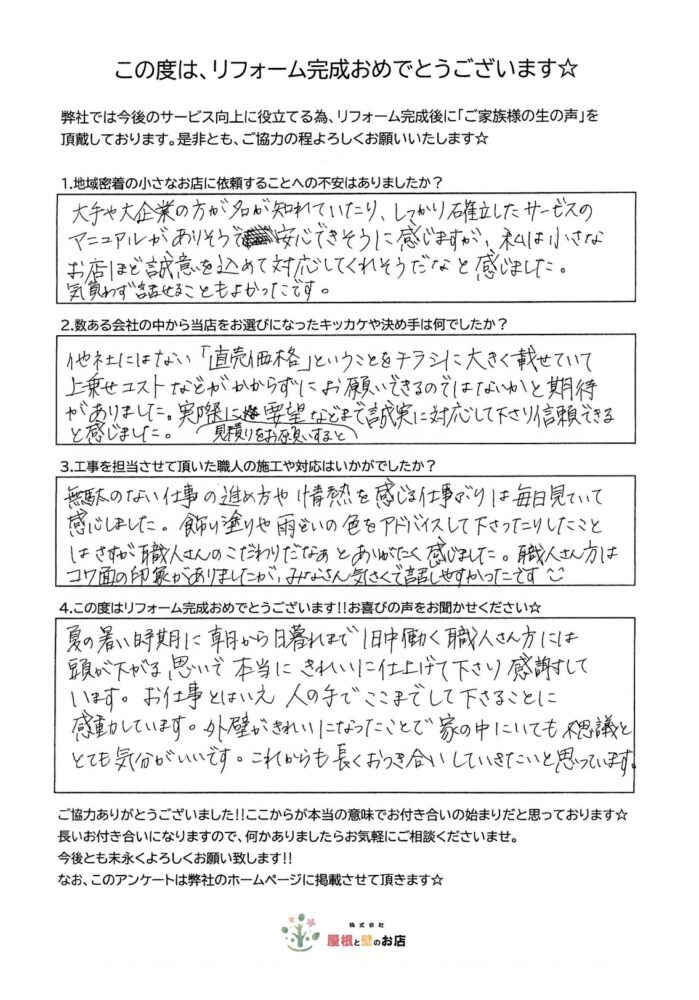 この度は、リフォーム完成おめでとうございます☆
弊社では今後のサービス向上に役立てる為、リフォーム完成後に「ご家族様の生の声」を
頂戴しております。是非とも、ご協力の程よろしくお願いいたします☆
1.地域密着の小さなお店に依頼することへの不安はありましたか？
大手や大企業の方が名が知れていたり、しっかり確立したサービスの
マニュアルがありそうで安心できそうに感じますが、私は小さな
お店ほど誠意を込めて対応してくれそうだなと感じました。
気負わず話せることもよかったです。
2.数ある会社の中から当店をお選びになったキッカケや決め手は何でしたか？
他社にはない「直売価格」ということをチラシに大きく載せていて
上乗せコストなどがかからずにお願いできるのではないかと期待
がありました。実際に要望などまで誠実に対応して下さり信頼できる
と感じました。 見積りをお願いすると
3.工事を担当させて頂いた職人の施工や対応はいかがでしたか？
無駄のない仕事の進め方や情熱を感じる仕事ぶりは毎日見ていて
感心しました。飾り塗りや雨どいの色をアドバイスして下さったりしたこと
はさすが職人さんのこだわりだなぁとありがたく感じました。職人さん方は
コワ面の印象がありましたが、みなさん気さくで話しやすかったです
4.この度はリフォーム完成おめでとうございます!!お喜びの声をお聞かせください☆
夏の暑い時期に朝から日暮れまで1日中働く職人さん方には
頭が下がる思いで本当にきれいに仕上げて下さり感謝して
います。お仕事とはいえ人の手でここまでして下さることに
感動しています。外壁がきれいになったことで家の中にいても不思議と
とても気分がいいです。これからも長くおつき合いしていきたいと思っています。
ご協力ありがとうございました!!ここからが本当の意味でお付き合いの始まりだと思っております☆
長いお付き合いになりますので、何かありましたらお気軽にご相談くださいませ。
今後とも末永くよろしくお願い致します!!
なお、このアンケートは弊社のホームページに掲載させて頂きます☆
株式会社
屋根と壁のお店